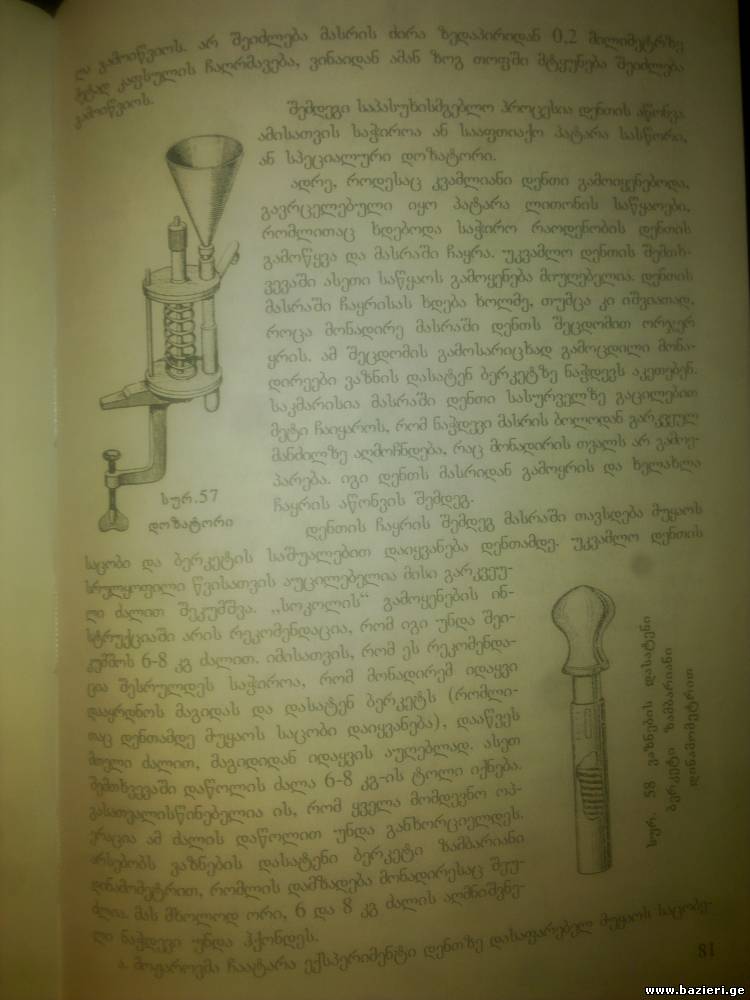 და გამოიწვიოს. არ შეიძლება მასრის ძირა ზედაპირიდან 0,2 მილიმეტრზე
მეტად კაფსულის ჩაღრმავება, ვინაიდან ამან ზოგ თოფში მტყუნება შეიძლება
გამოიწვიოს.
შემდეგი საპასუხისმგებლო პროცესია დენთის აწონვა.
ამისათვის საჭიროა ან სააფთიაქო პატარა სასწორი,
ან სპეციალური დოზატორი.
ადრე, როდესაც კვამლიანი დენთი გამოიყენებოდა,
გავრცელებული იყო პატარა ლითონის საწყაოები,
რომლითაც ხდებოდა საჭირო რაოდენობის დენთის
გამოწყვა და მასრაში ჩაყრა. უკვამლო დენთის შემთხ-
ვევაში ასეთი საწყაოს გამოყენება მიუღებელია. დენთის
მასრაში ჩაყრისას ხდება ხოლმე, თუმცა კი იშვიათად,
როცა მონადირე მასრაში დენთს შეცდომით ორჯერ
ყრის. ამ შეცდომის გამოსარიცხად გამოცდილი მონა-
დირეები ვაზნის დასატენ ბერკეტზე ნაჭდევს აკეთებენ.
საკმარისია მასრაში დენთი სასურველზე გაცილებით
მეტი ჩაიყაროს, რომ ნაჭდევი მასრის ბოლოდან გარკვეულ
მანძილზე აღმოჩნდება, რაც მონადირის თვალს არ გამოე-
პარება. იგი დენთს მასრიდან გამოყრის და ხელახლა
ჩაყრის აწონვის შემდეგ.
სურ.57
დოზატორი
დენთის ჩაყრის შემდეგ მასრაში თავსდება მუყაოს
საცობი და ბერკეტის საშუალებით დაიყვანება დენთამდე. უკვამლო დენთის
სრულყოფილი წვისათვის აუცილებელია მისი გარკვეუ-
ლი ძალით შეკუმშვა. ,,სოკოლის“ გამოყენების ინ-
სტრუქციაში არის რეკომენდაცია, რომ იგი უნდა შეი-
კუმშოს 6-8 კგ ძალით. იმისათვის, რომ ეს რეკომენდა-
ცია შესრულდეს საჭიროა, რომ მონადირემ იდაყვი
დააყრდნოს მაგიდას და დასატენ ბერკეტს (რომლი-
თაც დენთამდე მუყაოს საცობი დაიყვანება), დააწვეს
მთელი ძალით, მაგიდიდან იდაყვის აუღებლად. ასეთ
შემთხვევაში დაწოლის ძალა 6-8 კგ-ის ტოლი იქნება.
გასათვალისწინებელია ის, რომ ყველა მომდევნო ოპ-
ერაცია ამ ძალის დაწოლით უნდა განხორციელდეს.
არსებობს ვაზნების დასატენი ბერკეტი ზამბარიანი
დინამომეტრით, რომლის დამზადება მონადირესაც შეუ-
ძლია. მას მხოლოდ ორი, 6 და 8 კგ ძალის აღმნიშვნე-
ლი ნაჭდევი უნდა ჰქონდეს.
სურ. 58 ვაზნების დასატენი
ბერკეტი ზამბარიანი
დინამომეტრით
ჩაატარა ექსპერიმენტი დენთზე დასაფარებელ მუყაოს საცობე-
81
www.bazieri.ge